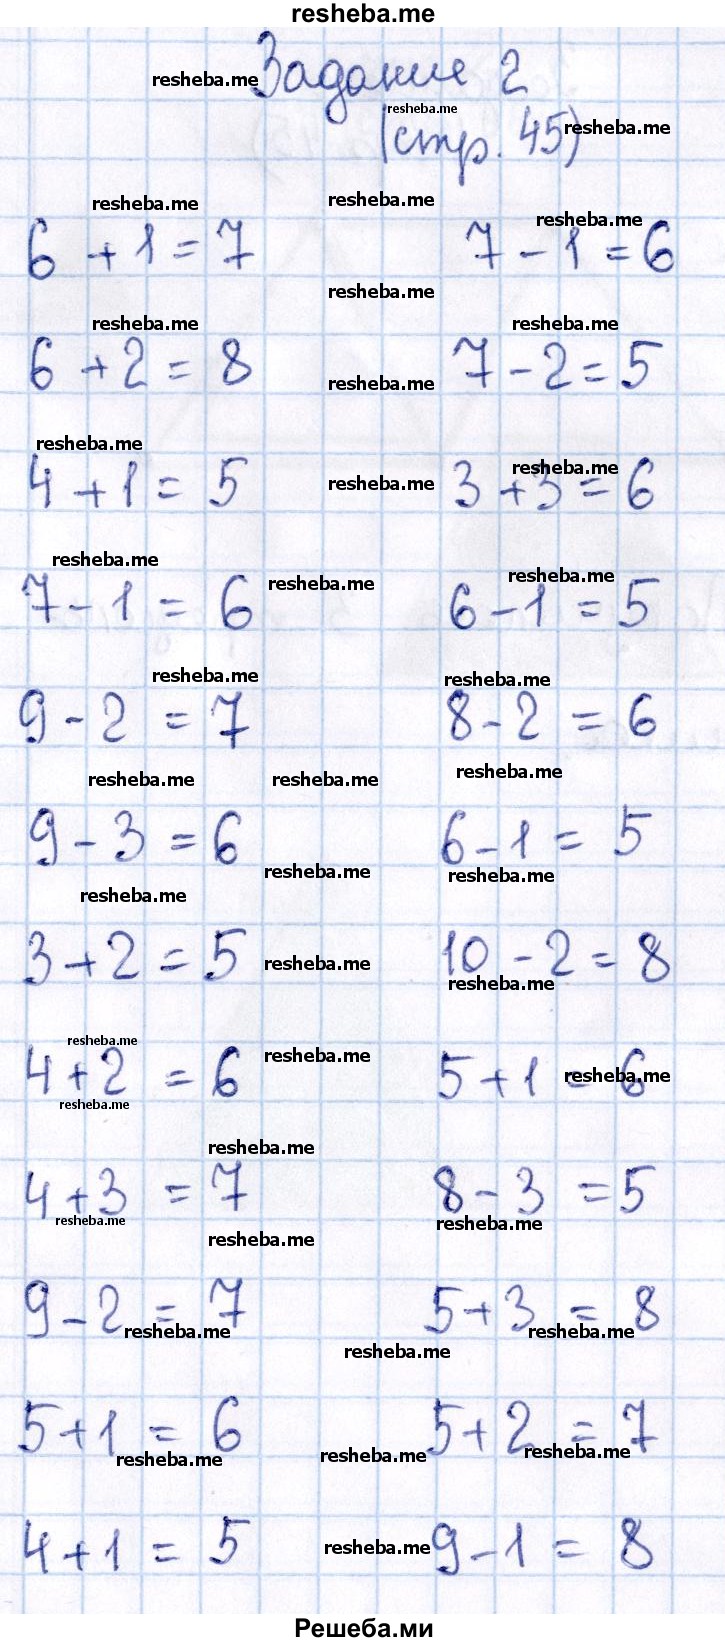 resheba.me
resheba.me Задание 2
resheba.me
(стр. 45) resheba.me
resheba.me resheba.me resheba.me
6 + 1 = 7 7 - 1 = 6
resheba.me
resheba.me resheba.me
6 + 2 = 8 resheba.me 7 - 2 = 5
resheba.me resheba.me
4 + 1 = 5 resheba.me 3 + 3 = 6
resheba.me resheba.me resheba.me
7 - 1 = 6 6 - 1 = 5
resheba.me resheba.me
9 - 2 = 7 8 - 2 = 6
resheba.me resheba.me resheba.me
9 - 3 = 6 6 - 1 = 5
resheba.me resheba.me
resheba.me
3 + 2 = 5 resheba.me 10 - 2 = 8
resheba.me
resheba.me resheba.me
4 + 2 = 6 5 + 1 = 6 resheba.me
resheba.me
resheba.me
4 + 3 = 7 8 - 3 = 5
resheba.me resheba.me
resheba.me
9 - 2 = 7 5 + 3 = 8
resheba.me resheba.me
resheba.me
5 + 1 = 6 5 + 2 = 7
resheba.me resheba.me resheba.me
4 + 1 = 5 resheba.me 9 - 1 = 8
Решеба.ми